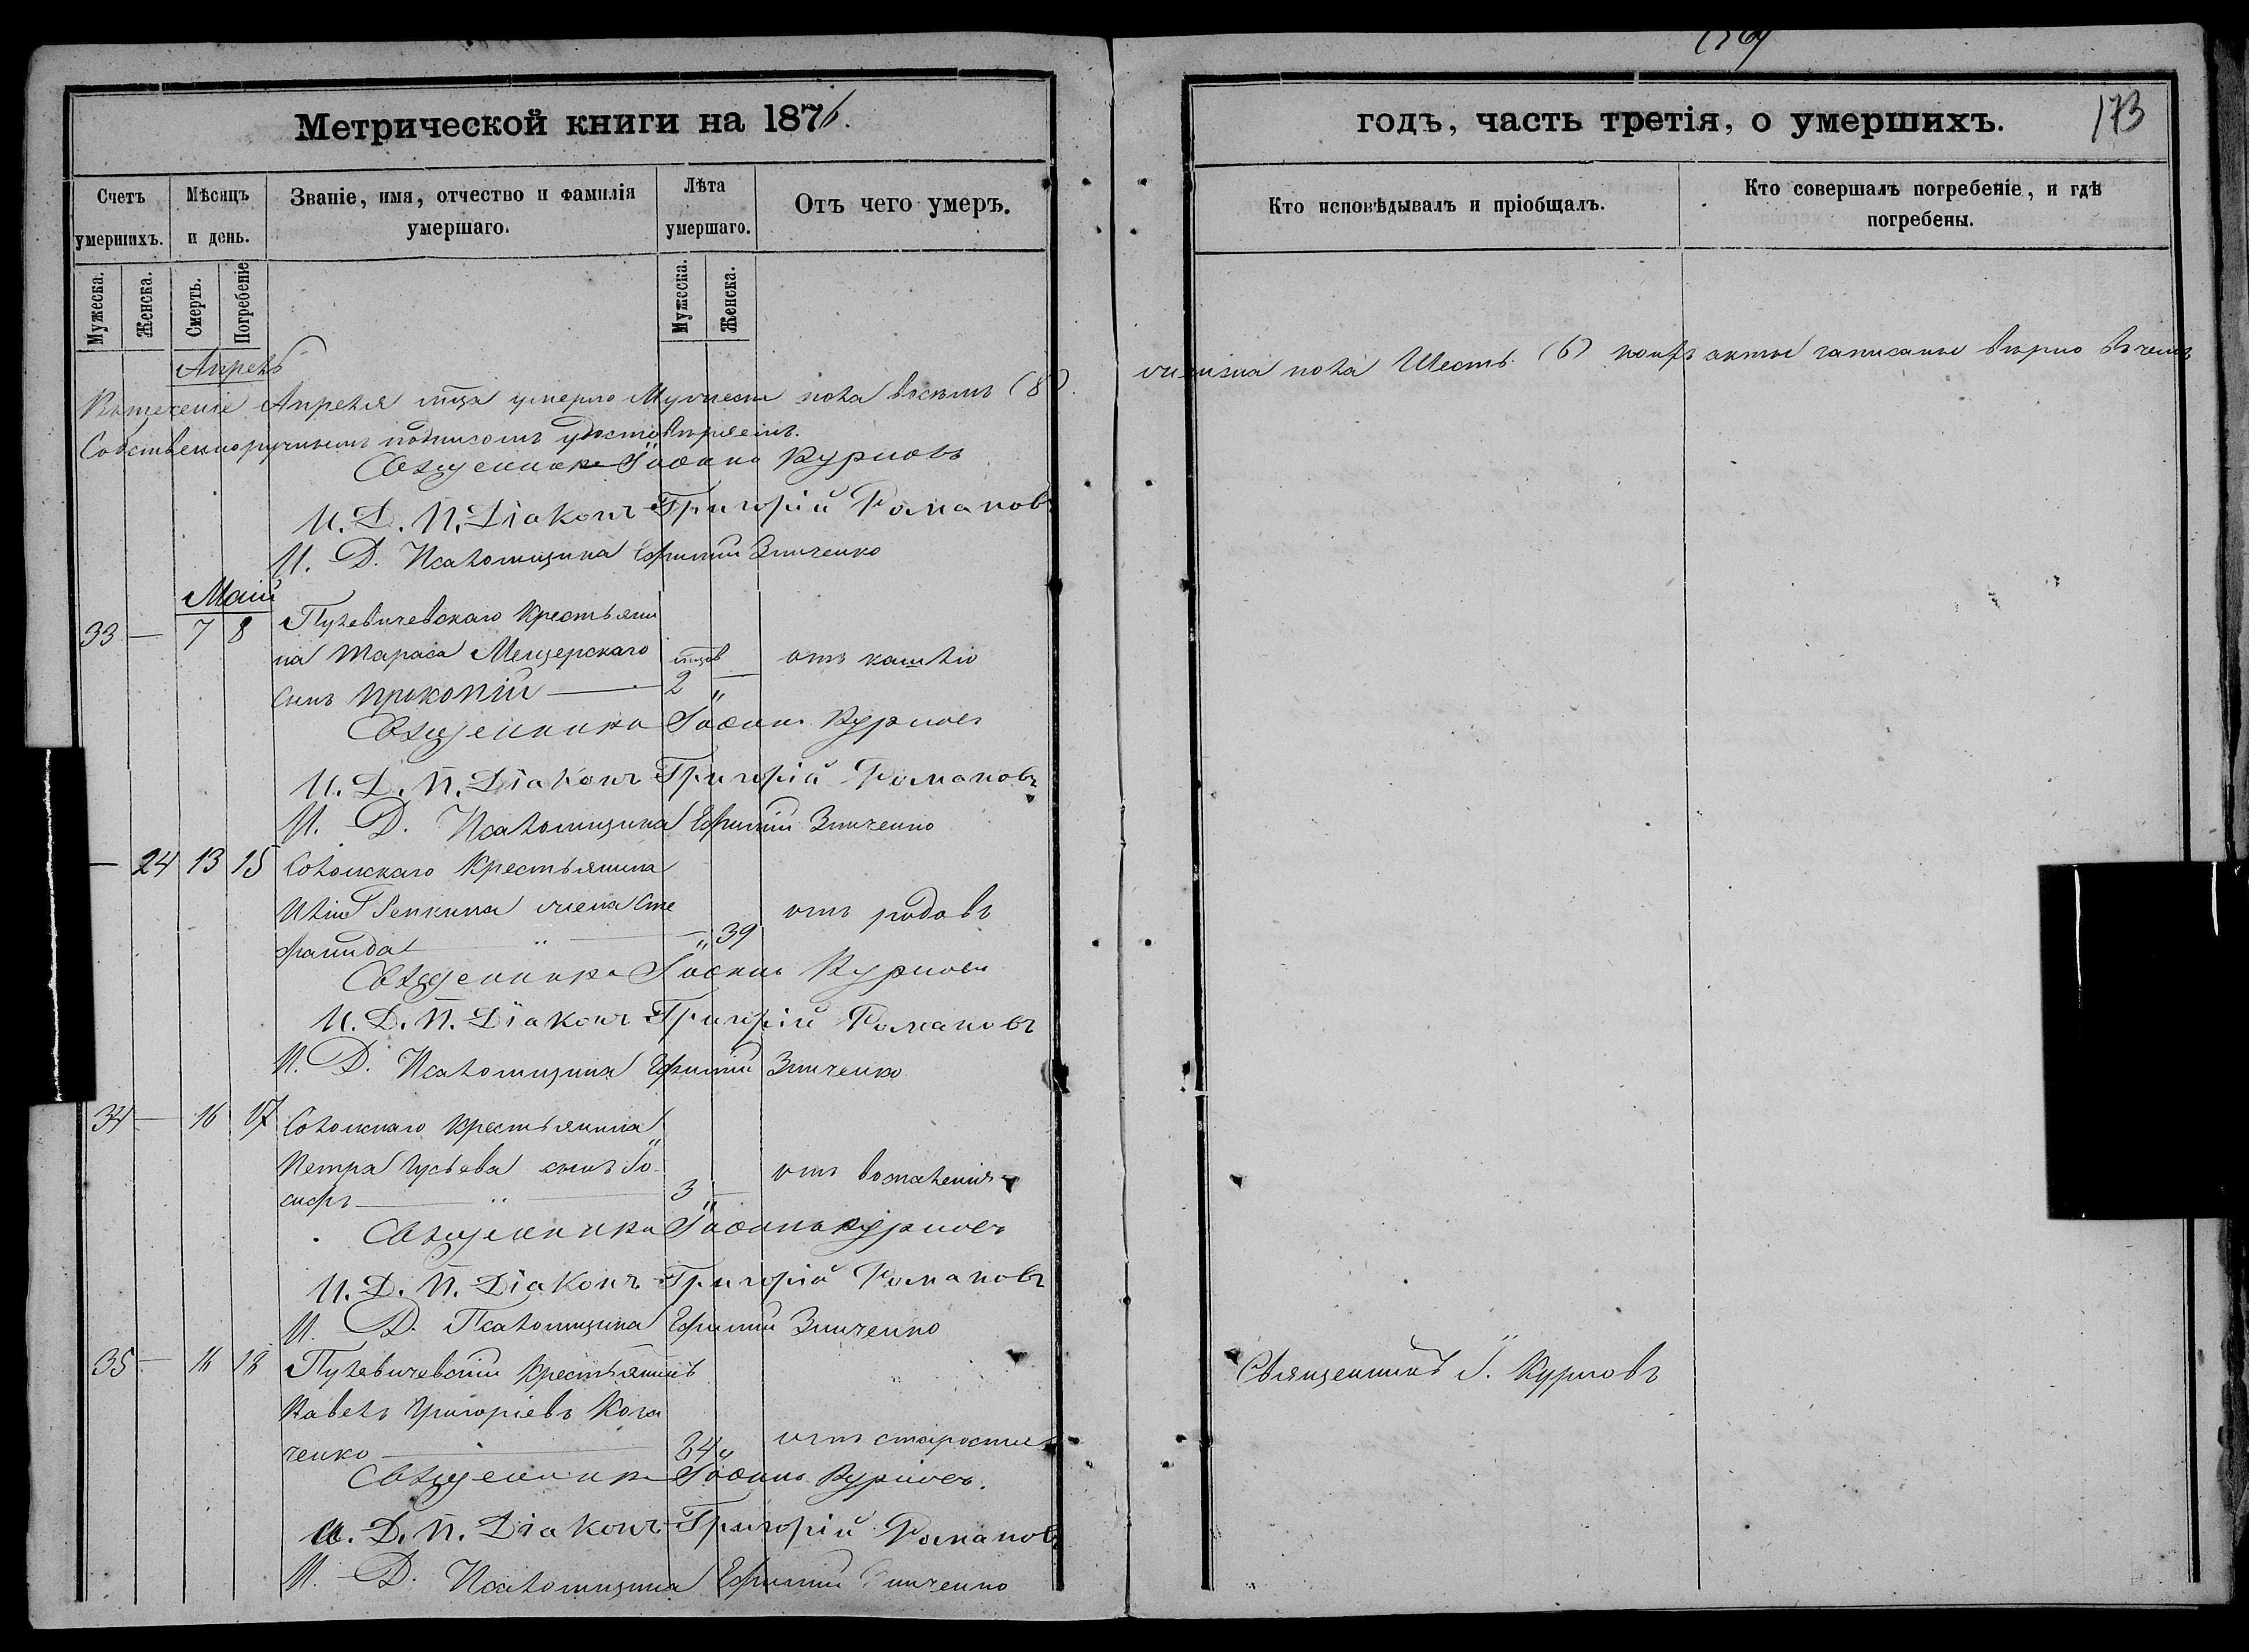 Метрической книги на 1876.
Счетъ умершихъ.
Мѣсяцъ и день.
Званіе, имя, отчество и фамилія умершаго.
Лѣта умершаго.
Отъ чего умеръ.
Мужеска.
Женска.
Смерть.
Погребеніе
Мужеска.
Женска.
Апрель
Въ теченіе Апреля мца умерло Мужеска пола восемь (8)
Собственноручнымъ подписомъ удостовѣряемъ.
Священникъ Іоаннъ Курловъ
И. Д. П. Діаконъ Григорій Романовъ
И. Д. Псаломщика Ефимій Зинченко
Маій
33 — 7 8 Пулевичевскаго Крестьяни
на Тараса Мещерскаго мцов отъ кашлю
сынъ Прокопій — 2 „
Священникъ Іоаннъ Курловъ
И. Д. П. Діаконъ Григорій Романовъ
И. Д. Псаломщика Ефимій Зинченко
— 24 13 15 Сокольскаго Крестьянина
жена Сте отъ родовъ
фанида „ — „ 39
Священникъ Іоаннъ Курловъ
И. Д. П. Діаконъ Григорій Романовъ
И. Д. Псаломщика Ефимій Зинченко
34 — 16 17 Сокольскаго Крестьянина
Петра Гусьева сынъ Іо- отъ воспаленія
сифъ — „ — 3 „
Священникъ Іоаннъ Курловъ
И. Д. П. Діаконъ Григорій Романовъ
И. Д. Псаломщика Ефимій Зинченко
35 — 16 18 Пулевичевскій Крестьянинъ
Павелъ Григоріевъ Коза
ченко — 84 „ отъ старости
Священникъ Іоаннъ Курловъ.
И. Д. П. Діаконъ Григорій Романовъ
И. Д. Псаломщика Ефимій Зинченко
годъ, часть третія, о умершихъ.
173
Кто исповѣдывалъ и пріобщалъ.
Кто совершалъ погребеніе, и гдѣ погребены.
женска пола Шесть (6) акты записаны вѣрно въ чемъ
Священникъ І. Курловъ